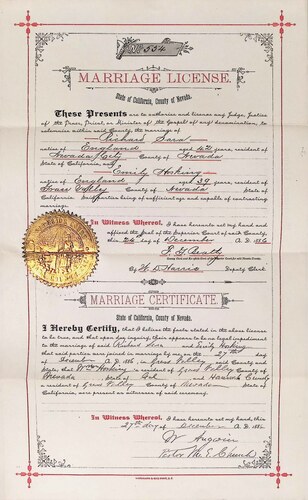 No 554
MARRIAGE LICENSE.
State of California, County of Nevada.
These Presents are to authorize and license any Judge, Justice
of the Peace, Priest, or Minister of the Gospel of any denomination, to
solemnize within said County, the marriage of
Richard
native of England aged 42 years, resident of
Nevada City County of Nevada
State of California, and
Emily Hosking
native of England aged 39 years, resident of
Grass Valley County of Nevada State of
California. Said parties being of sufficient age and capable of contracting
marriage.
In Witness Whereof, I have hereunto set my hand and
affixed the seal of the Superior Court of said County,
this 24 day of December A. D. 1886
By Harris Deputy Clerk
MARRIAGE CERTIFICATE.
State of California, County of Nevada.
I Hereby Certify, that I believe the facts stated in the above license
to be true, and that upon due inquiry, there appears to be no legal impediment
to the marriage of said Richard and Emily Hosking
that said parties were joined in marriage by me, on the 27th day
of A. D. 1886, in Grass Valley County and
State; that Wm Hosking a resident of Grass Valley County of
Nevada State of Cal. and
a resident of Grass Valley County of Nevada State of
were present as witness of said ceremony.
In Witness Whereof, I have hereunto set my hand, this
27th day of December A. D. 1886
W Angwin
Pastor M. E. Church